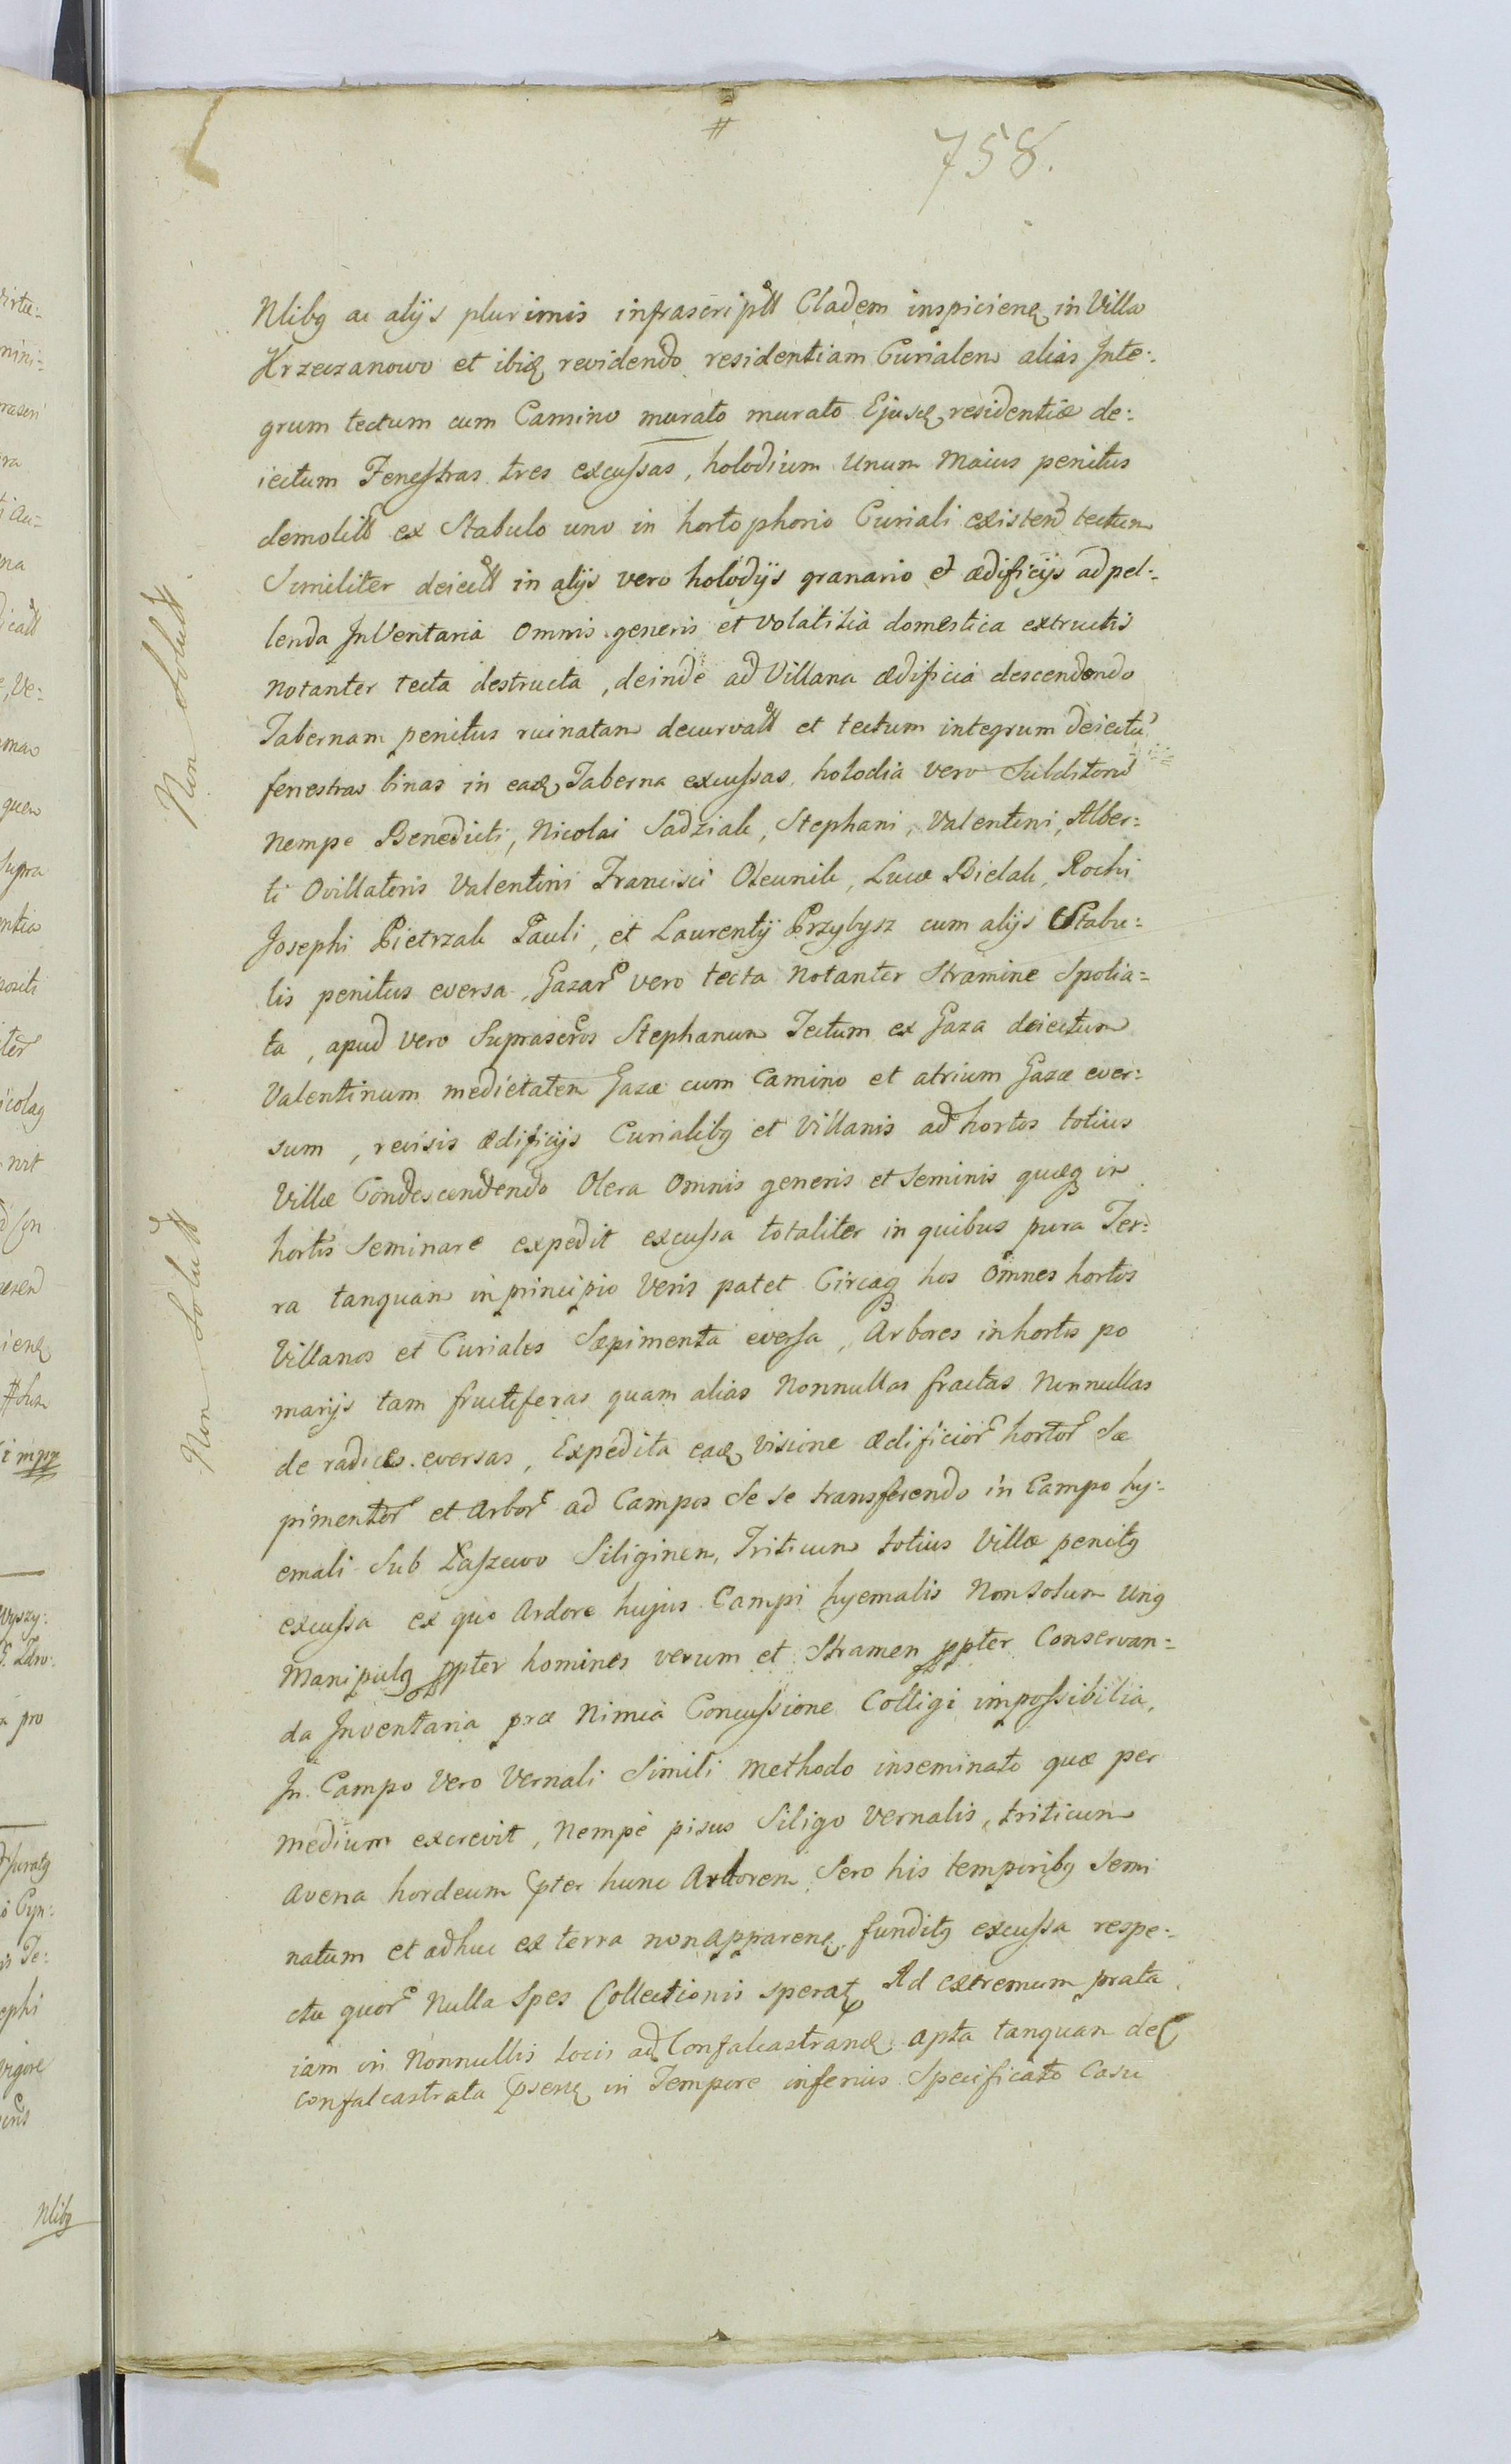 #
758.
Nlibq ac alijs plurimis infrascriptt Cladem inspicienq in Villa
Krzeczanowo et ibiq revidendo residentiam Curialem alias Inte:
grum tectum cum Camino murato murato Ejusq residentiæ de:
iectum Fenestras tres excussas, holodium Unum Maius penitus
demolitt ex Stabulo uno in hortophorio Curiali existen tectum
Similiter deiectt in alijs vero holodijs granario et ædificijs ad pel:
lenda InVentaria Omnis generis et Volatilia domestica extructis
Notanter tecta destructa, deinde ad Villana ædificia descendendo
Tabernam penitus ruinatam decurvatt et tectum integrum deiectu
fenestras binas in eaq Taberna excussas holodia vero Subditorū
Nempe Benedicti, Nicolai Sadziak, Stephani, Valentini, Alber:
ti Ovillatoris Valentini Francisci Olcunik, Lucæ Bielak, Rochi
Josephi Pietrzak Pauli, et Laurentij Przybysz cum alijs Stabu:
lis penitus eversa, Gazar vero tecta Notanter Stramine Spolia=
ta, apud vero Suprascros Stephanum Tectum ex Gaza deiectum
Valentinum medietatem Gazæ cum Camino et atrium Gazæ ever:
sum, revisis ædificijs Curialibq et Villanis ad hortos totius
Villæ Condescendendo Olera Omnis generis et Seminis quæq in
hortis Seminare expedit excussa totaliter in quibus pura Ter:
ra tanquam in principio Veris patet Circaq hos Omnes hortos
Villanos et Curiales Sæpimenta eversa, Arbores in hortis po
marijs tam fructiferas quam alias Nonnullas fractas Nonnullas
de radices eversas, Expedita eaq visione ædificior hortor Sæ
pimentor et Arbor ad Campos Se se transferendo in Campo hy:
emali Sub Łaszewo Siliginem, Triticum totius Villæ penitq
excussa ex quo Ardore hujus Campi hyemalis Non Solum Unq
Manipulq ppter homines verum et Stramen ppter Conservan=
da Inventaria præ Nimia Concussione Colligi impossibilia,
In Campo Vero Vernali Simili Methodo inseminato quæ per
medium excrevit, Nempe pisus Siligo Vernalis, triticum
Avena hordeum ppter hunc Ardorem Sero his temporibq Semi
natum et adhuc ex terra non apparenq funditq excussa respe:
ctu quor Nulla Spes Collectionis sperat Ad extremum prata
iam in Nonnullis Locis ad Confalcastranq apta tanquam de
Confalcastrata psenq in Tempore inferius Specificato Casu
Non Solutt
Non Solutt
Nlibq